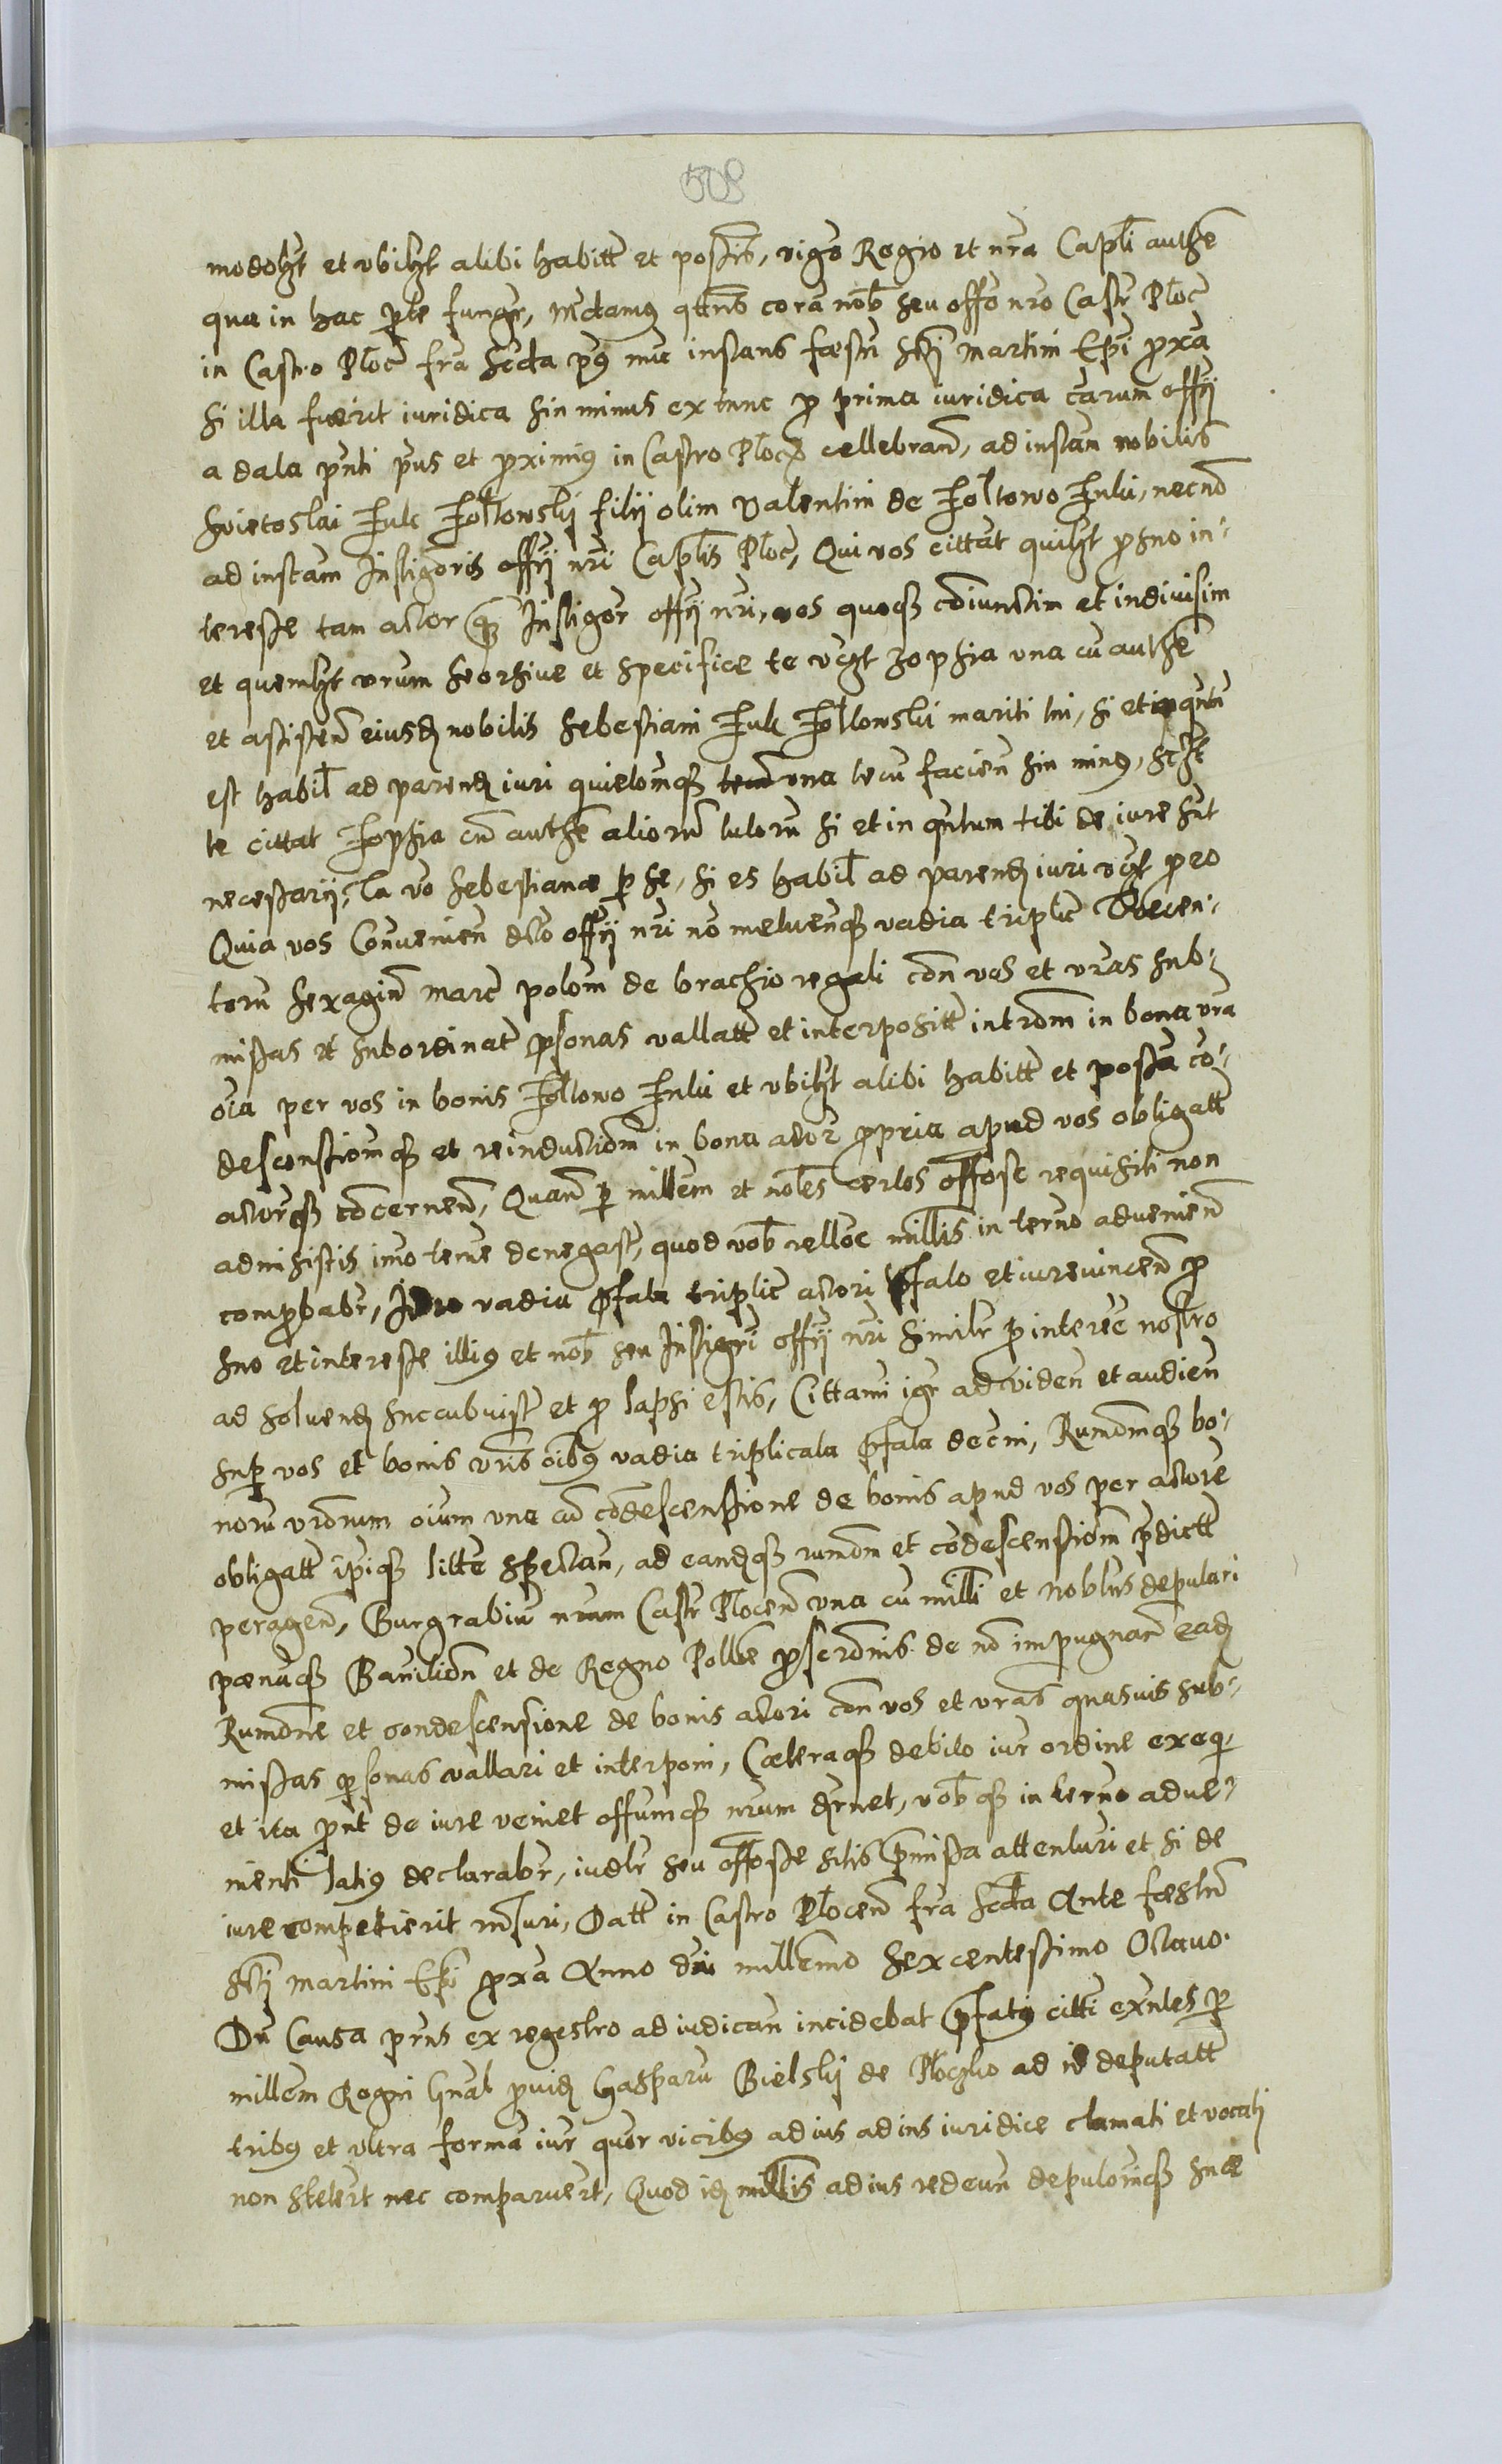 508
modolzt et vbilzt alibi habitt et possis, vigo Regio et nra Capli authe
qua in hac pte fungr, mdamus qttns cora nob seu offo nro Castr Ploc
in Castro Ploc fra scda post nuc instans festu scti Martini Epi proxa
si illa fuerit iuridica sin minus extunc pro prima iuridica carum offii
a data pnti prius et proximius in Castro Plocen cellebran, ad instan nobilis
Swietoslai Fulc Foltowskij filij olim Valentini de Foltowo Fulki, necno
ad instam Instigoris offij nri Caplis Ploc, Qui vos cittat quilzt pro suo in-
teresse tam actor quam Instigor offij nri, vos quoque coniunctim et indivisim
et quemlzt vrum seorsive et specifice te vczt Zophia vna cu authe
et assisten eiusdem nobilis Sebestiani Fulk Foltowski mariti tui, si et in quntu
est habil ad parend iuri quietomque vna tecu facien sin minus,
te cittat Zophia cu authe aliorum tutoru si et in quntum tibi de iure sut
necessarij, Ta vo Sebestiane per se, si es habil ad parend iuri vczt pro eo
Quia vos Convenien dco offij nri no metuenque vadia triplic Ducen-
toru sexagin marc polom de brachio regali con vos et vras sub-
missas et subordinat psonas vallatt et interpositt introm in bona vra
oia per vos in bonis Foltowo Fulki et vbilzt alibi habitt et possa co-
descensiomque et reinductiom in bona actor propria apud vos obligatt
actorque concernen, Quam per millem et nobles certos offose requisiti non
admisistis imo terme denegast, quod vob relloe millis in termo advenien
comprobabr, Ideo vadia pfata triplic actori pfato et iurevincen pro
suo et interesse illius et nob seu Instigri offij nri similr pro interee nostro
ad solvend succubuist et pro lapsi estis, Cittami igr ad viden et audien
sup vos et bonis vris oibus vadia triplicata pfata decni, Rumomque bo-
noru vrorum oium vna cu condescensione de bonis apud vos per actore
obligatt ipique litte spectan, ad eandque rumom et condescensiom predictt
peragen, Burgrabiu nrum Castr Plocen vna cu milli et noblus deputari
pænaque Bannition et de Regno Pollœ proscronis de no impugnan ead
Rumone et condescensione de bonis actori con vos et vras quasvis sub-
missas psonas vallari et interponi, Cœteraque debito iur ordine exeqi
et ita prout de iure veniet offumque nrum drnet, vobque in termo adve-
nienti latius declarabr, iudlr seu offosse sitis premissa attenturi et si de
iure competierit rnsuri, Datt in Castro Plocen fra scda Ante festu
scti Martini Epi proxa Anno dni millemo sexcentessimo Octavo.
Du Causa prns ex regestro ad iudican incidebat pfatus citti exntes per
millem Regni Gnal provid Gasparu Bielskij de Plocko ad id deputatt
tribus et vltra forma iur quor vicibus ad ius ad ius iuridice clamati et vocati
non steterut nec comparuert, Quod id millis ad ius redeun deputomque suæ